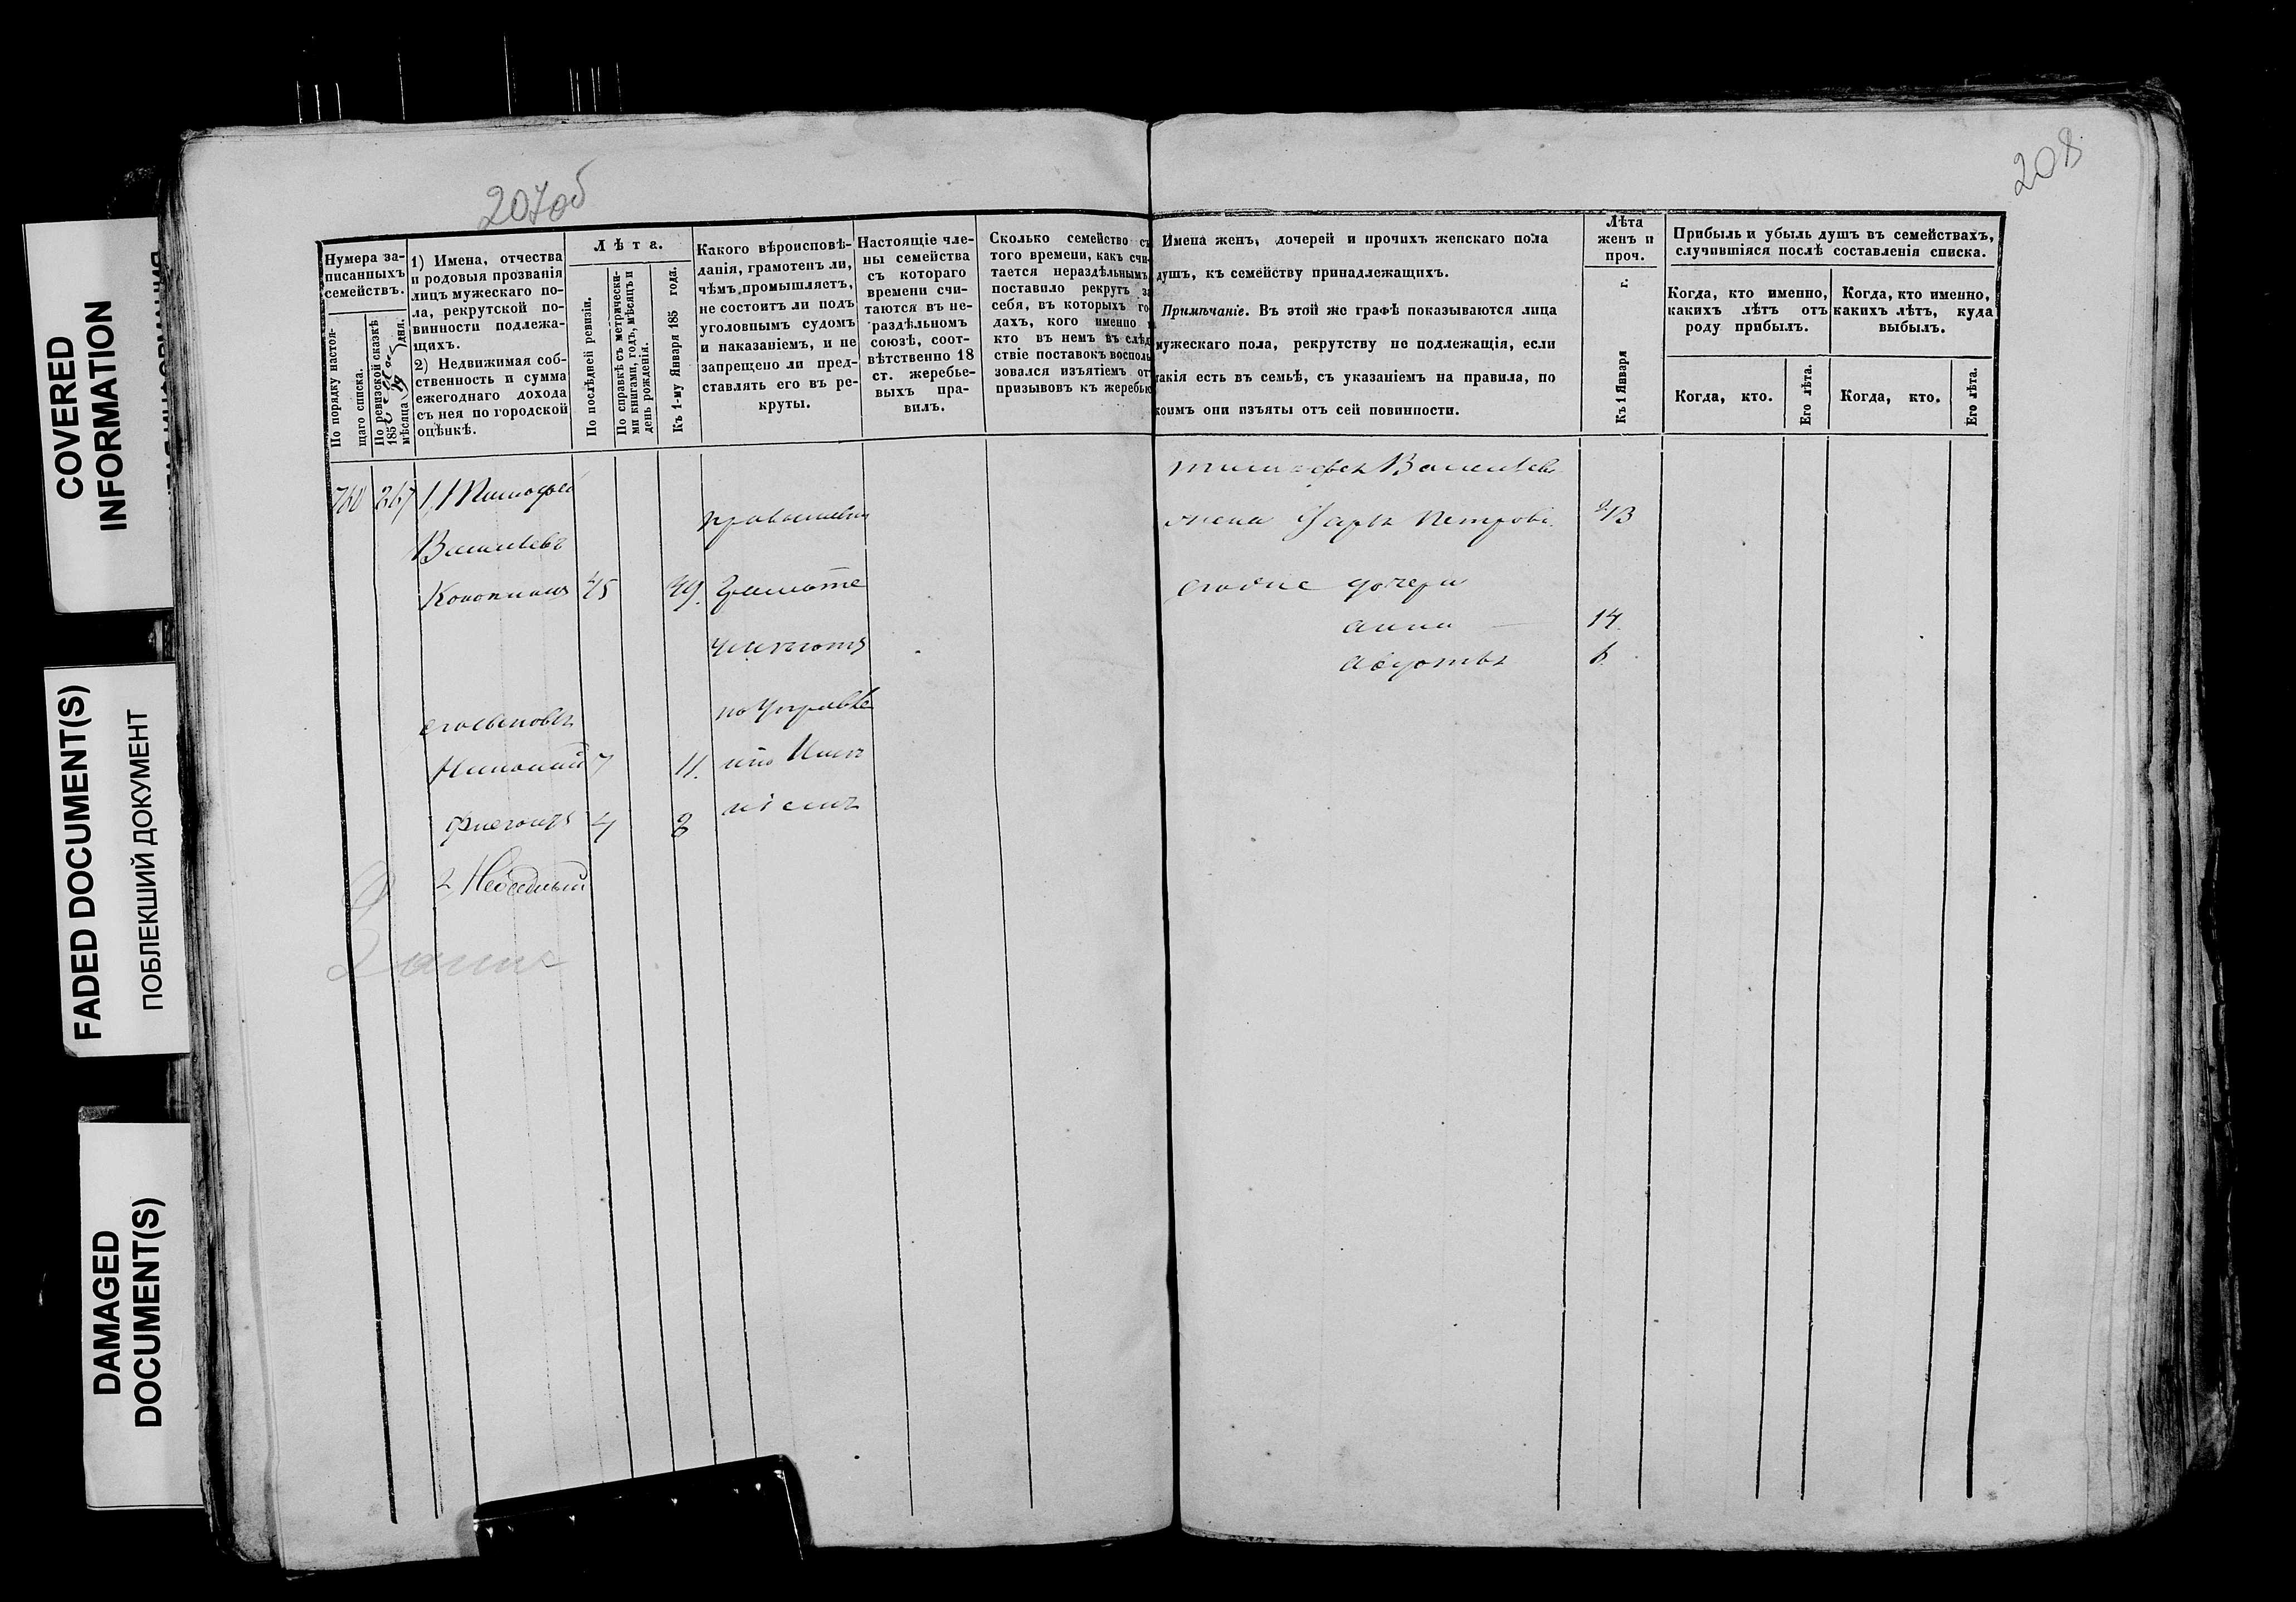 COVERED
INFORMATION
FADED DOCUMENT(S)
ПОБЛЕКШИЙ ДОКУМЕНТ
DAMAGED
DOCUMENT(S)
207об
208
Нумера за-
писанныхъ
семействъ.
По порядку настоя-
щаго списка.
По ревизской сказкѣ
185
мѣсяца 19 дня.
1) Имена, отчества
и родовыя прозванія
лицъ мужескаго по-
ла, рекрутской по-
винности подлежа-
щихъ.
2) Недвижимая соб-
ственность и сумма
ежегоднаго дохода
съ нея по городской
оцѣнкѣ.
Лѣта.
По послѣдней ревизіи.
По справкѣ съ метрически-
ми книгами, годъ, мѣсяцъ и
день рожденія.
Къ 1-му Января 185 года.
Какого вѣроисповѣ-
данія, грамотенъ ли,
чѣмъ промышляетъ,
не состоитъ ли подъ
уголовнымъ судомъ
и наказаніемъ, и не
запрещено ли пред-
ставлять его въ ре-
круты.
Настоящіе чле-
ны семейства
съ котораго
времени счи-
таются въ не-
раздѣльномъ
союзѣ, соот-
вѣтственно 18
ст. жеребье-
выхъ пра-
вилъ.
Сколько семейство съ
того времени, какъ счи-
тается нераздѣльнымъ,
поставило рекрутъ за
себя, въ которыхъ го-
дахъ, кого именно и
кто въ немъ въ слѣд-
ствіе поставокъ восполь-
зовался изъятіемъ отъ
призывовъ къ жеребью
Имена женъ, дочерей и прочихъ женскаго пола
душъ, къ семейству принадлежащихъ.
Примѣчаніе. Въ этой же графѣ показываются лица
мужескаго пола, рекрутству не подлежащія, если
такія есть въ семьѣ, съ указаніемъ на правила, по
коимъ они изъяты отъ сей повинности.
Лѣта
женъ и
проч.
Къ 1 Января г.
Прибыль и убыль душъ въ семействахъ,
случившіяся послѣ составленія списка.
Когда, кто именно,
какихъ лѣтъ отъ
роду прибылъ.
Когда, кто именно,
какихъ лѣтъ, куда
выбылъ.
Когда, кто.
Его лѣта.
Когда, кто.
Его лѣта.
760 267 1, Тимофей
Васильевъ
45 49. Грамоте
его сыновья
Николай 7 11.
4 8
2 Небедный
православн
Тимофея Васильева
жена Дарья Петрова 43
его же дочери
анна 14.
Авдотья 6.